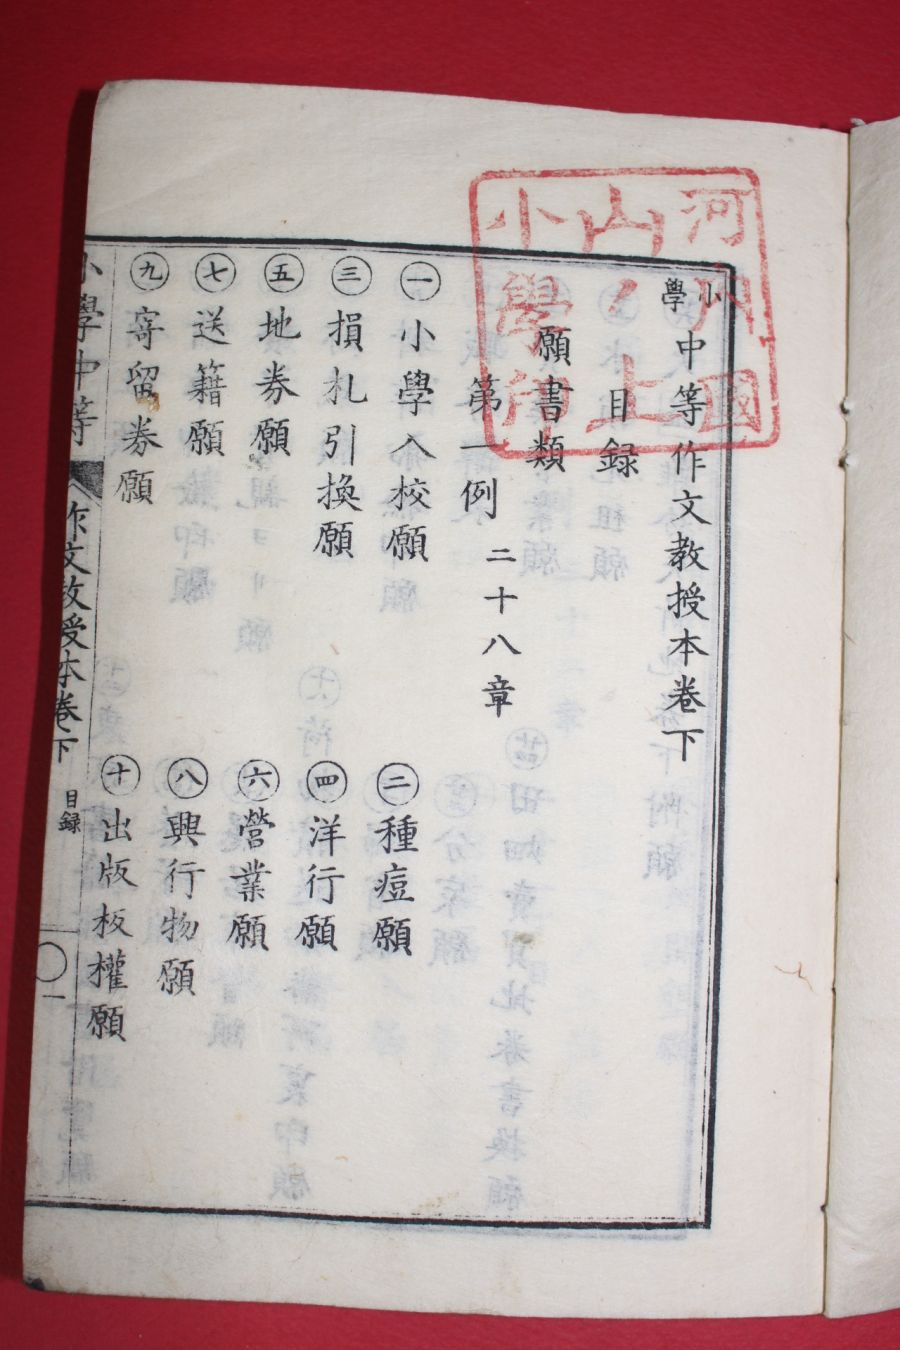 小學中等作文教授本卷下
目録
願書類
第一例 二十八章
㊀小學入校願
㊁種痘願
㊂損札引換願
㊃洋行願
㊄地券願
㊅營業願
㊆送籍願
㊇興行物願
㊈寄留券願
㊉出版板權願
小學中等作文教授本卷下 目録 一
河内國
山ノ上
小學